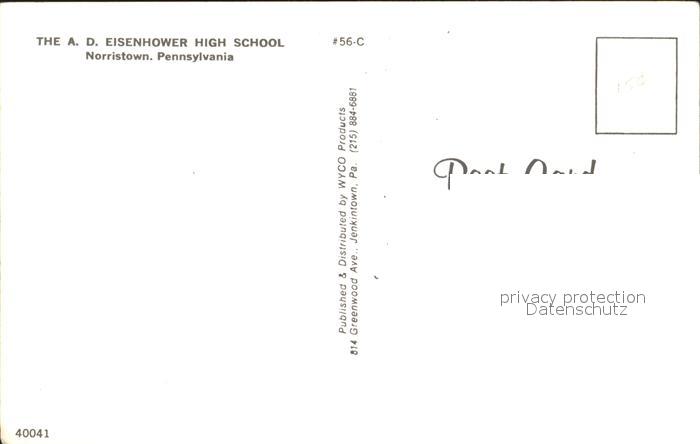 THE A. D. EISENHOWER HIGH SCHOOL
Norristown. Pennsylvania
#56-C
Published & Distributed by WYCO Products
814 Greenwood Ave., Jenkintown, Pa. (215) 884-6881
Post Card
privacy protection
Datenschutz
40041